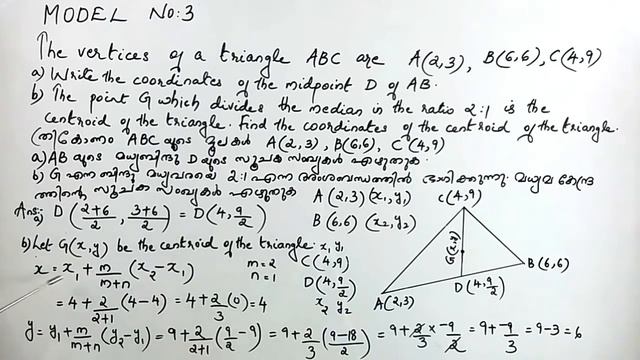 MODEL No:3
The vertices of a triangle ABC are A(2,3), B(6,6), C(4,9)
a) Write the coordinates of the midpoint D of AB.
b) The point G which divides the median in the ratio 2:1 is the
centroid of the triangle. Find the coordinates of the centroid of the triangle.
(ത്രികോണം ABC യുടെ മൂലകൾ A(2,3), B(6,6), C(4,9)
a) AB യുടെ മധ്യബിന്ദു D യുടെ സൂചക സംഖ്യകൾ എഴുതുക.
b) G എന്ന ബിന്ദു മധ്യവരയെ 2:1 എന്ന അംശബന്ധത്തിൽ ഭാഗിക്കുന്നു. മധ്യമ കേന്ദ്ര
ത്തിന്റെ സൂചക സംഖ്യകൾ എഴുതുക
A(2,3) (x₁,y₁)
Ans:
a) D(2+6/2, 3+6/2) = D(4, 9/2)
B(6,6) (x₂,y₂)
b) Let G(x,y) be the centroid of the triangle.
x₁ y₁
C(4,9)
x = x₁ + m/m+n (x₂-x₁)
m=2
n=1
D(4, 9/2)
x₂ y₂
= 4 + 2/2+1 (4-4) = 4 + 2/3 (0) = 4
y = y₁ + m/m+n (y₂-y₁) = 9 + 2/2+1 (9/2 - 9) = 9 + 2/3 (9-18/2) = 9 + 2/3 × -9/2 = 9 + -9/3 = 9-3 = 6
C(4,9)
G(x,y)
B(6,6)
D(4, 9/2)
A(2,3)